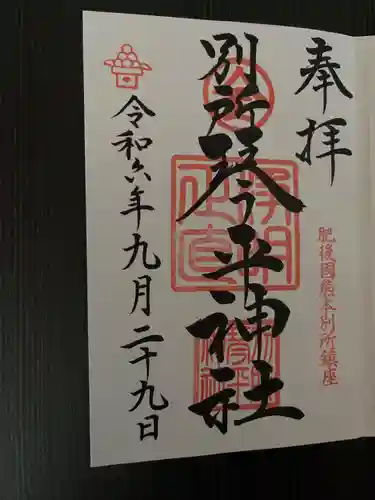 奉拝
肥後国熊本別所鎮座
別所琴平神社
令和六年九月二十九日